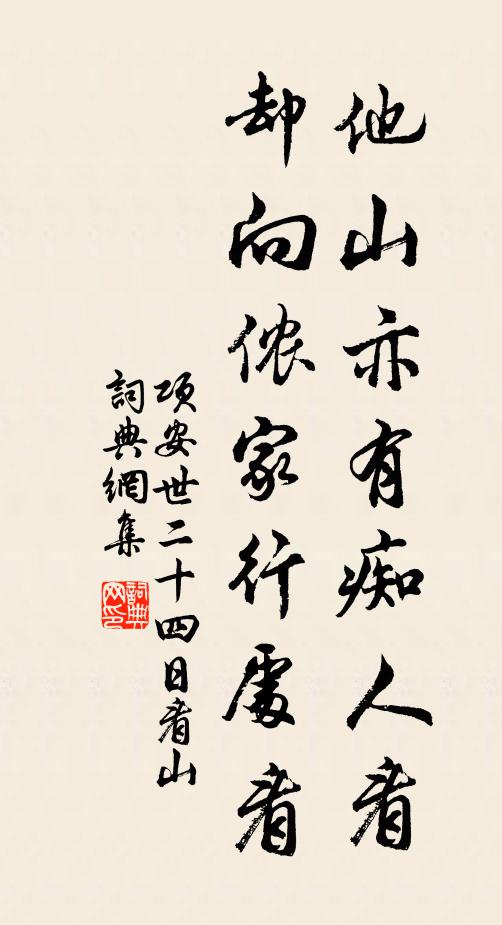 他山亦有痴人看
却向侬家行處看
项安世二十四日看山
詞典網集
詞典网印